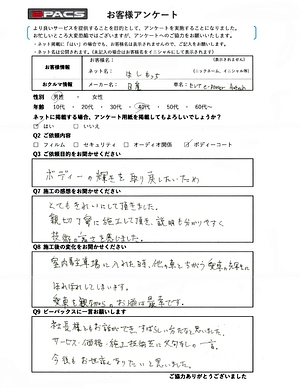 SPACS お客様アンケート
より良いサービスを提供することを目的として、アンケートを実施することになりました。
お忙しいところ大変恐縮ではございますが、アンケートへのご協力をお願いいたします。
・ネット掲載に「はい」の場合でも、お客様名は表示されませんので、ご記入をお願いします。
・ネット名は公開されます。(未記入の場合はお客様名をイニシャルにして表示されます)
お客様情報
お客様名:
(表示されません)
ネット名:
(ニックネーム、イニシャル等)
おクルマ情報
メーカー名: 日産
車名: セレナ e-power
性別 男性 ・ 女性
年齢 10代 ・ 20代 ・ 30代 ・ 40代 ・ 50代 ・ 60代~
ネットに掲載する場合、アンケート用紙を掲載してもよろしいでしょうか?
はい いいえ
Q2 ご依頼内容
フィルム セキュリティ オーディオ関係 ボディーコート
Q3 ご依頼目的をお聞かせください
ボディーの輝きを取り戻したいため
Q7 施工の感想をお聞かせください
とてもきれいにして頂きました。
親切丁寧に施工して頂き、説明も分かりやすく
技術の高さを感じました。
Q8 施工後の変化をお聞かせください
室内駐車場に入れた時、他の車とちがう愛車の
ほれぼれしてしまいます。
愛車を観ながらのお酒は最高です。
Q9 ピーパックスに一言お願いします
社長様ともお話ができ、すばらしい方だなと思いました。
サービス・価格・施工技術全に文句なしの一言。
今後もお世話になりたいと思いました。
ご協力ありがとうございました